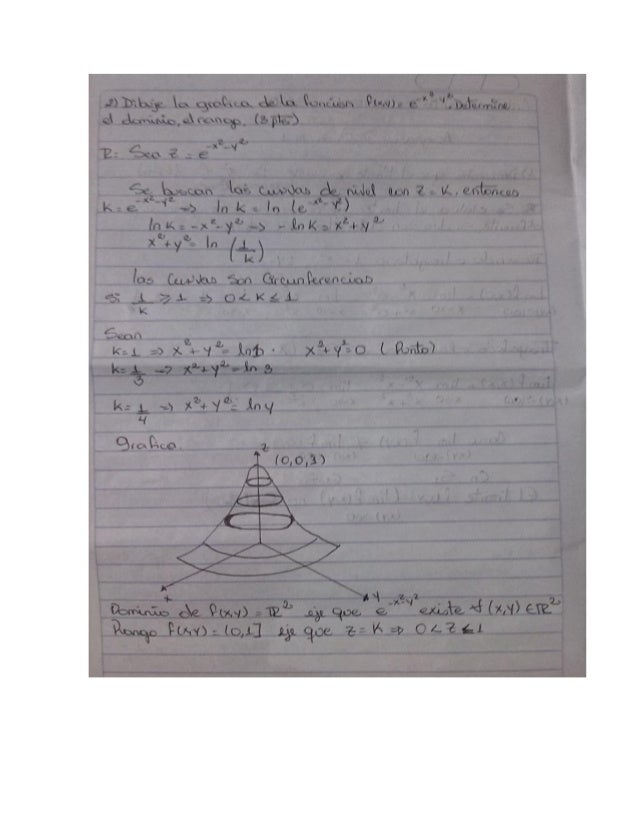 2) Dibuje la grafica de la función f(x,y) = e^-x²-y². Determine
el dominio, el rango. (3 pto)
R: Sea z = e^-x²-y²
Se buscan las curvas de nivel con z = k, entonces
k = e^-x²-y² => ln k = ln (e^-x²-y²)
ln k = -x²-y² => -ln k = x²+y²
x²+y² = ln (1/k)
las curvas son Circunferencias
si 1/k ≥ 1 => 0 < k ≤ 1
Sean
k=1 => x²+y² = ln 1. x²+y²=0 (Punto)
k=1/3 => x²+y² = ln 3
k=1/4 => x²+y² = ln 4
Grafica.
z
(0,0,1)
x y
Dominio de f(x,y) = ℝ² eje que e^-x²-y² existe ∀ (x,y) ∈ ℝ²
Rango f(x,y) = (0,1] eje que z = k => 0 < z ≤ 1